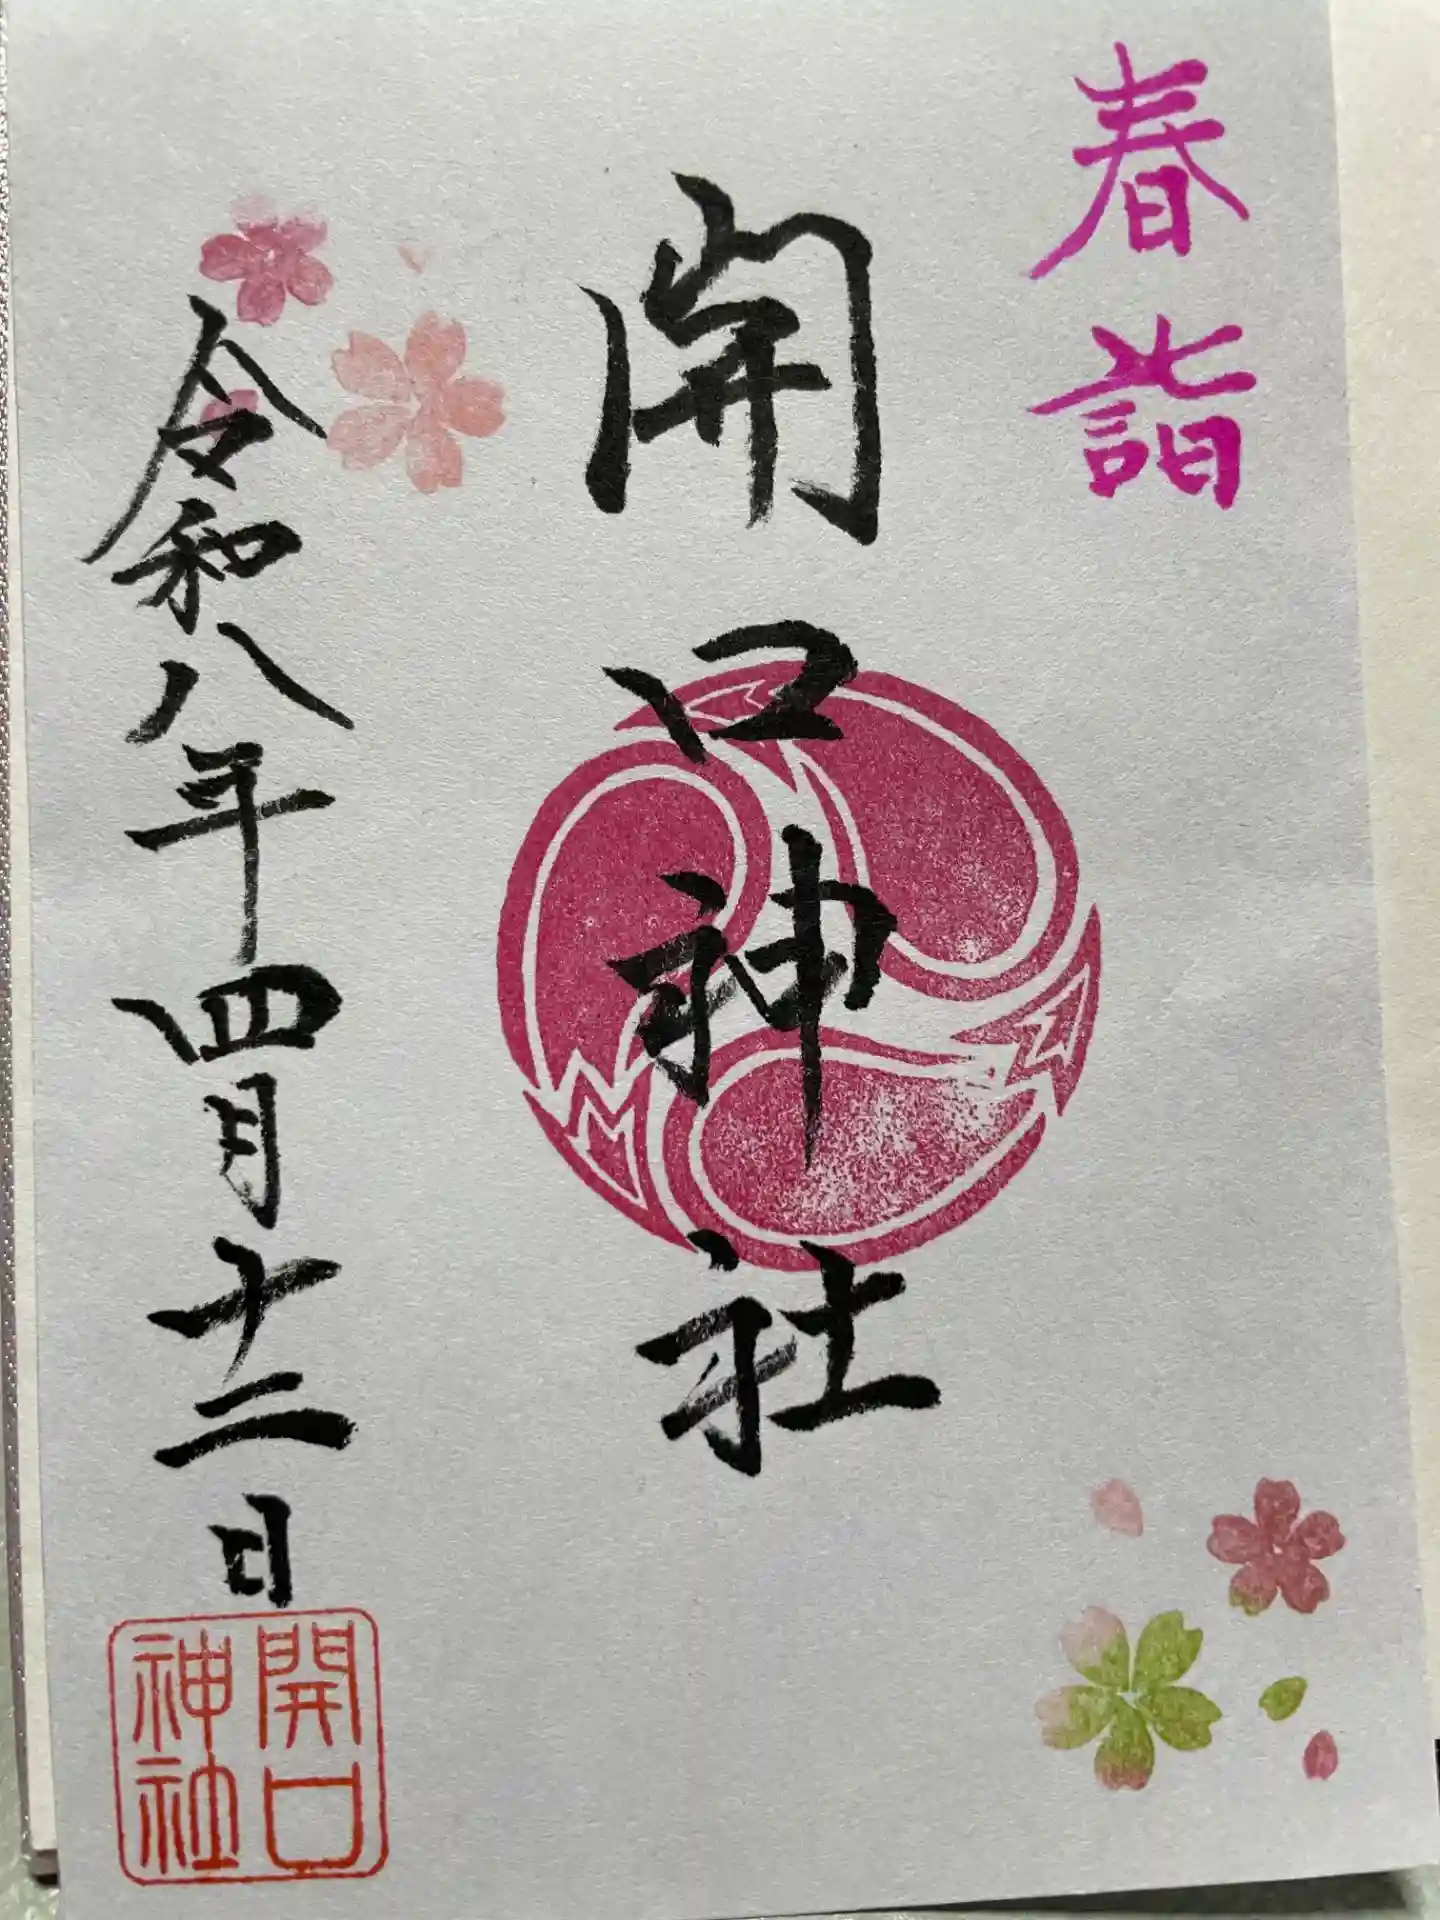 春詣
開口神社
令和八年四月十二日
開口
神社